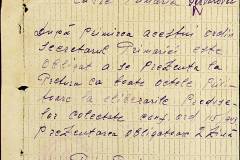 Către Primăria
După primirea acestui ordin
secretarul Primăriei este
obligat a se prezenta la
Pretura cu toate actele privi
toare la eliberarile Produse
lor colectate conf. ord 15
prezentarea obligatoare